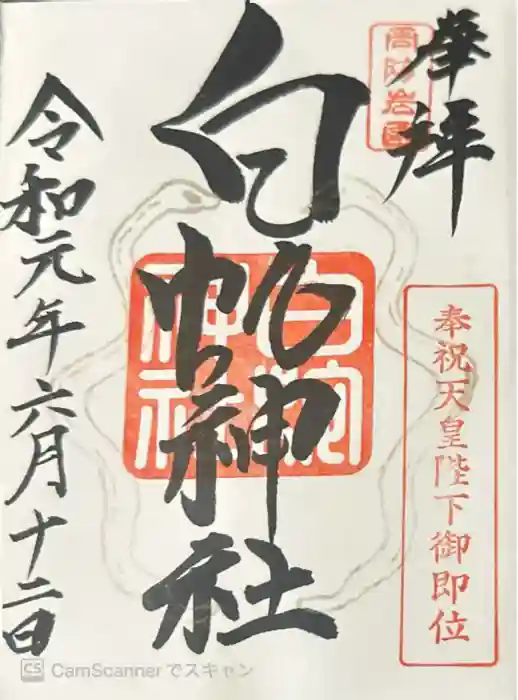 奉拝
周防岩国
奉祝天皇陛下御即位
白蛇神社
白蛇神社
令和元年六月十二日
CS CamScanner でスキャン